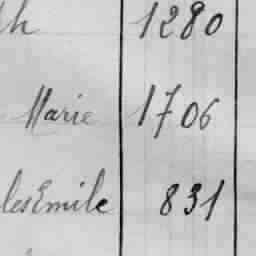 th 1280
Marie 1706
les Emile 831